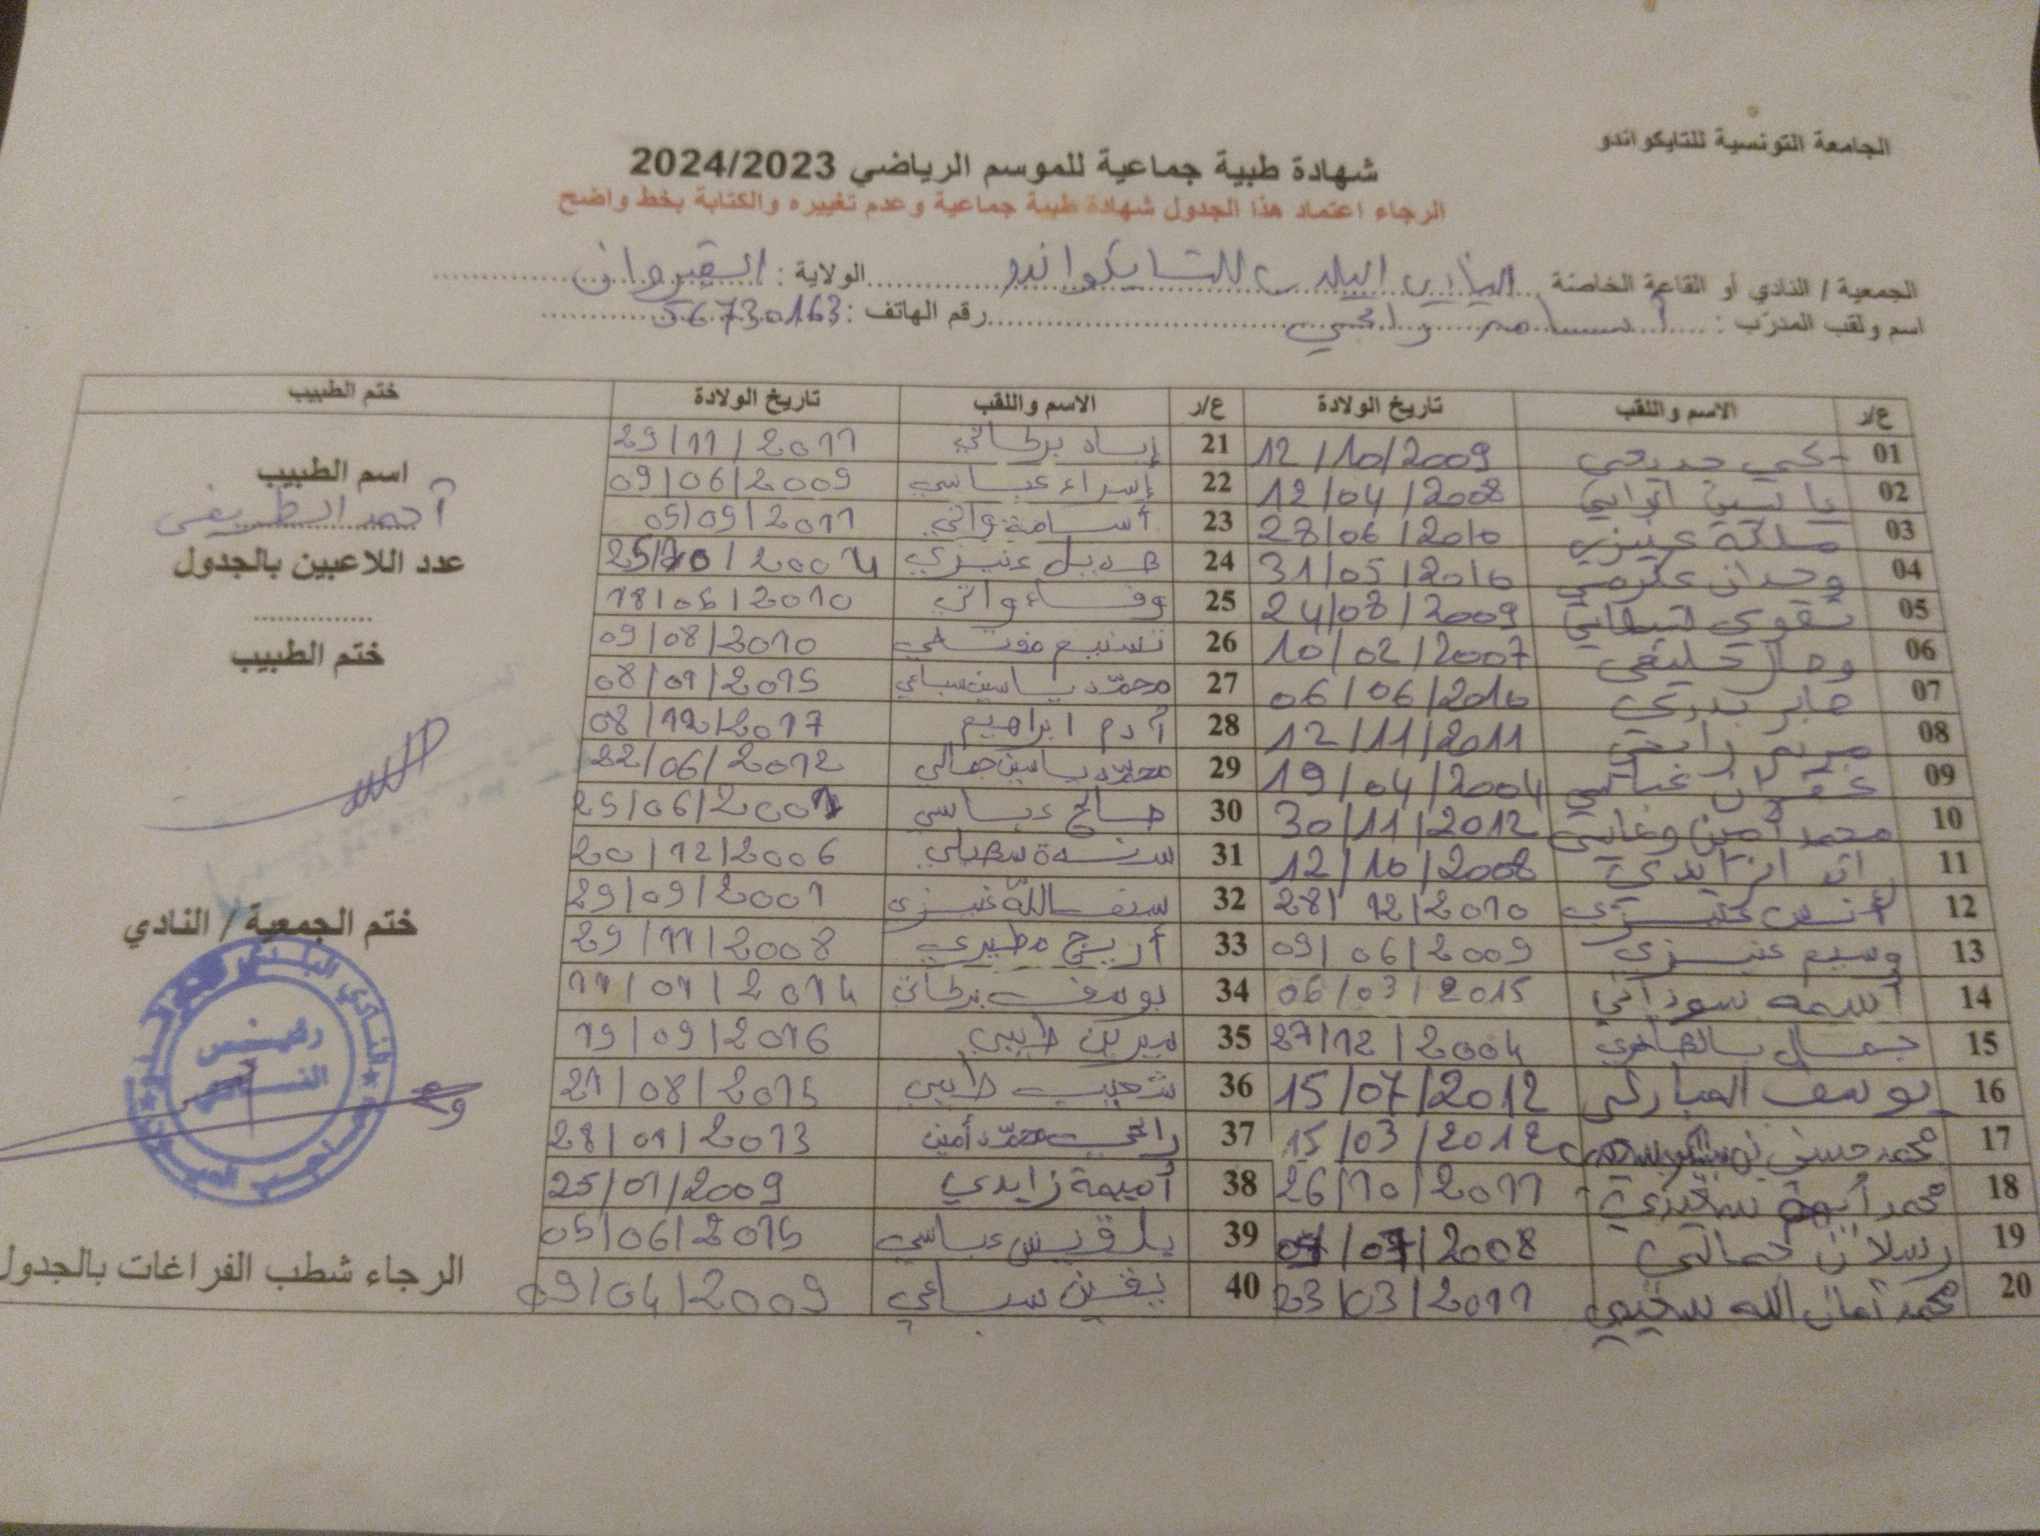 الجامعة التونسية للتايكواندو
شهادة طبية جماعية للموسم الرياضي 2024/2023
الرجاء اعتماد هذا الجدول شهادة طبية جماعية وعدم تغييره والكتابة بخط واضح
الجمعية / النادي أو القاعة الخاصة النادي البلدي للتايكواندو الولاية : القيروان
اسم ولقب المدرب : أسامة رابحي رقم الهاتف : 56730163
ع/ر الاسم واللقب تاريخ الولادة ع/ر الاسم واللقب تاريخ الولادة ختم الطبيب
01 12/10/2009
02 12/04/2008
03 ملكة عنيزي 28/06/2010
04 وجدان 31/05/2010
05 تقوى 24/08/2009
06 خليفي 10/02/2007
07 صابر بدري 06/06/2010
08 مريم رابحي 12/11/2011
09 غفران عباسي 19/04/2004
10 محمد أمين 30/11/2012
11 رائد الزايدي 12/10/2008
12 أنس عنيزي 28/12/2010
13 وسيم عنيزي 09/06/2009
14 أسمه سوداني 06/03/2015
15 جمال بالهادي 27/12/2004
16 يوسف المباركي 15/07/2012
17 محمد حسني 15/03/2012
18 محمد أيهم سعيدي 26/10/2011
19 رسلان جمالي 07/2008
20 محمد أمان الله سحيمي 23/03/2011
21 إياد برطاني 29/11/2011
22 إسراء عباسي 09/06/2009
23 أسامة واني 05/09/2011
24 هديل عنيزي
25 وفاء واني 18/06/2010
26 تسنيم 09/08/2010
27 محمد ياسين سباعي 08/01/2015
28 آدم ابراهيم 08/12/2017
29 محمد ياسين جمالي 22/06/2012
30 صالح عباسي 25/06/2001
31 سندة سهيلي 20/12/2006
32 سيف الله عنيزي 29/09/2001
33 أريج مطيري 29/11/2008
34 يوسف برطاني 11/01/2014
35 سيرين طبيبي 19/09/2016
36 شعيب طبيبي 21/08/2015
37 رابحي محمد أمين 28/01/2013
38 أميمة زايدي 25/01/2009
39 بلقيس عباسي 05/06/2015
40 يقين سباعي 09/04/2009
اسم الطبيب
أحمد الطريفي
عدد اللاعبين بالجدول
ختم الطبيب
ختم الجمعية / النادي
رئيس
الرجاء شطب الفراغات بالجدول